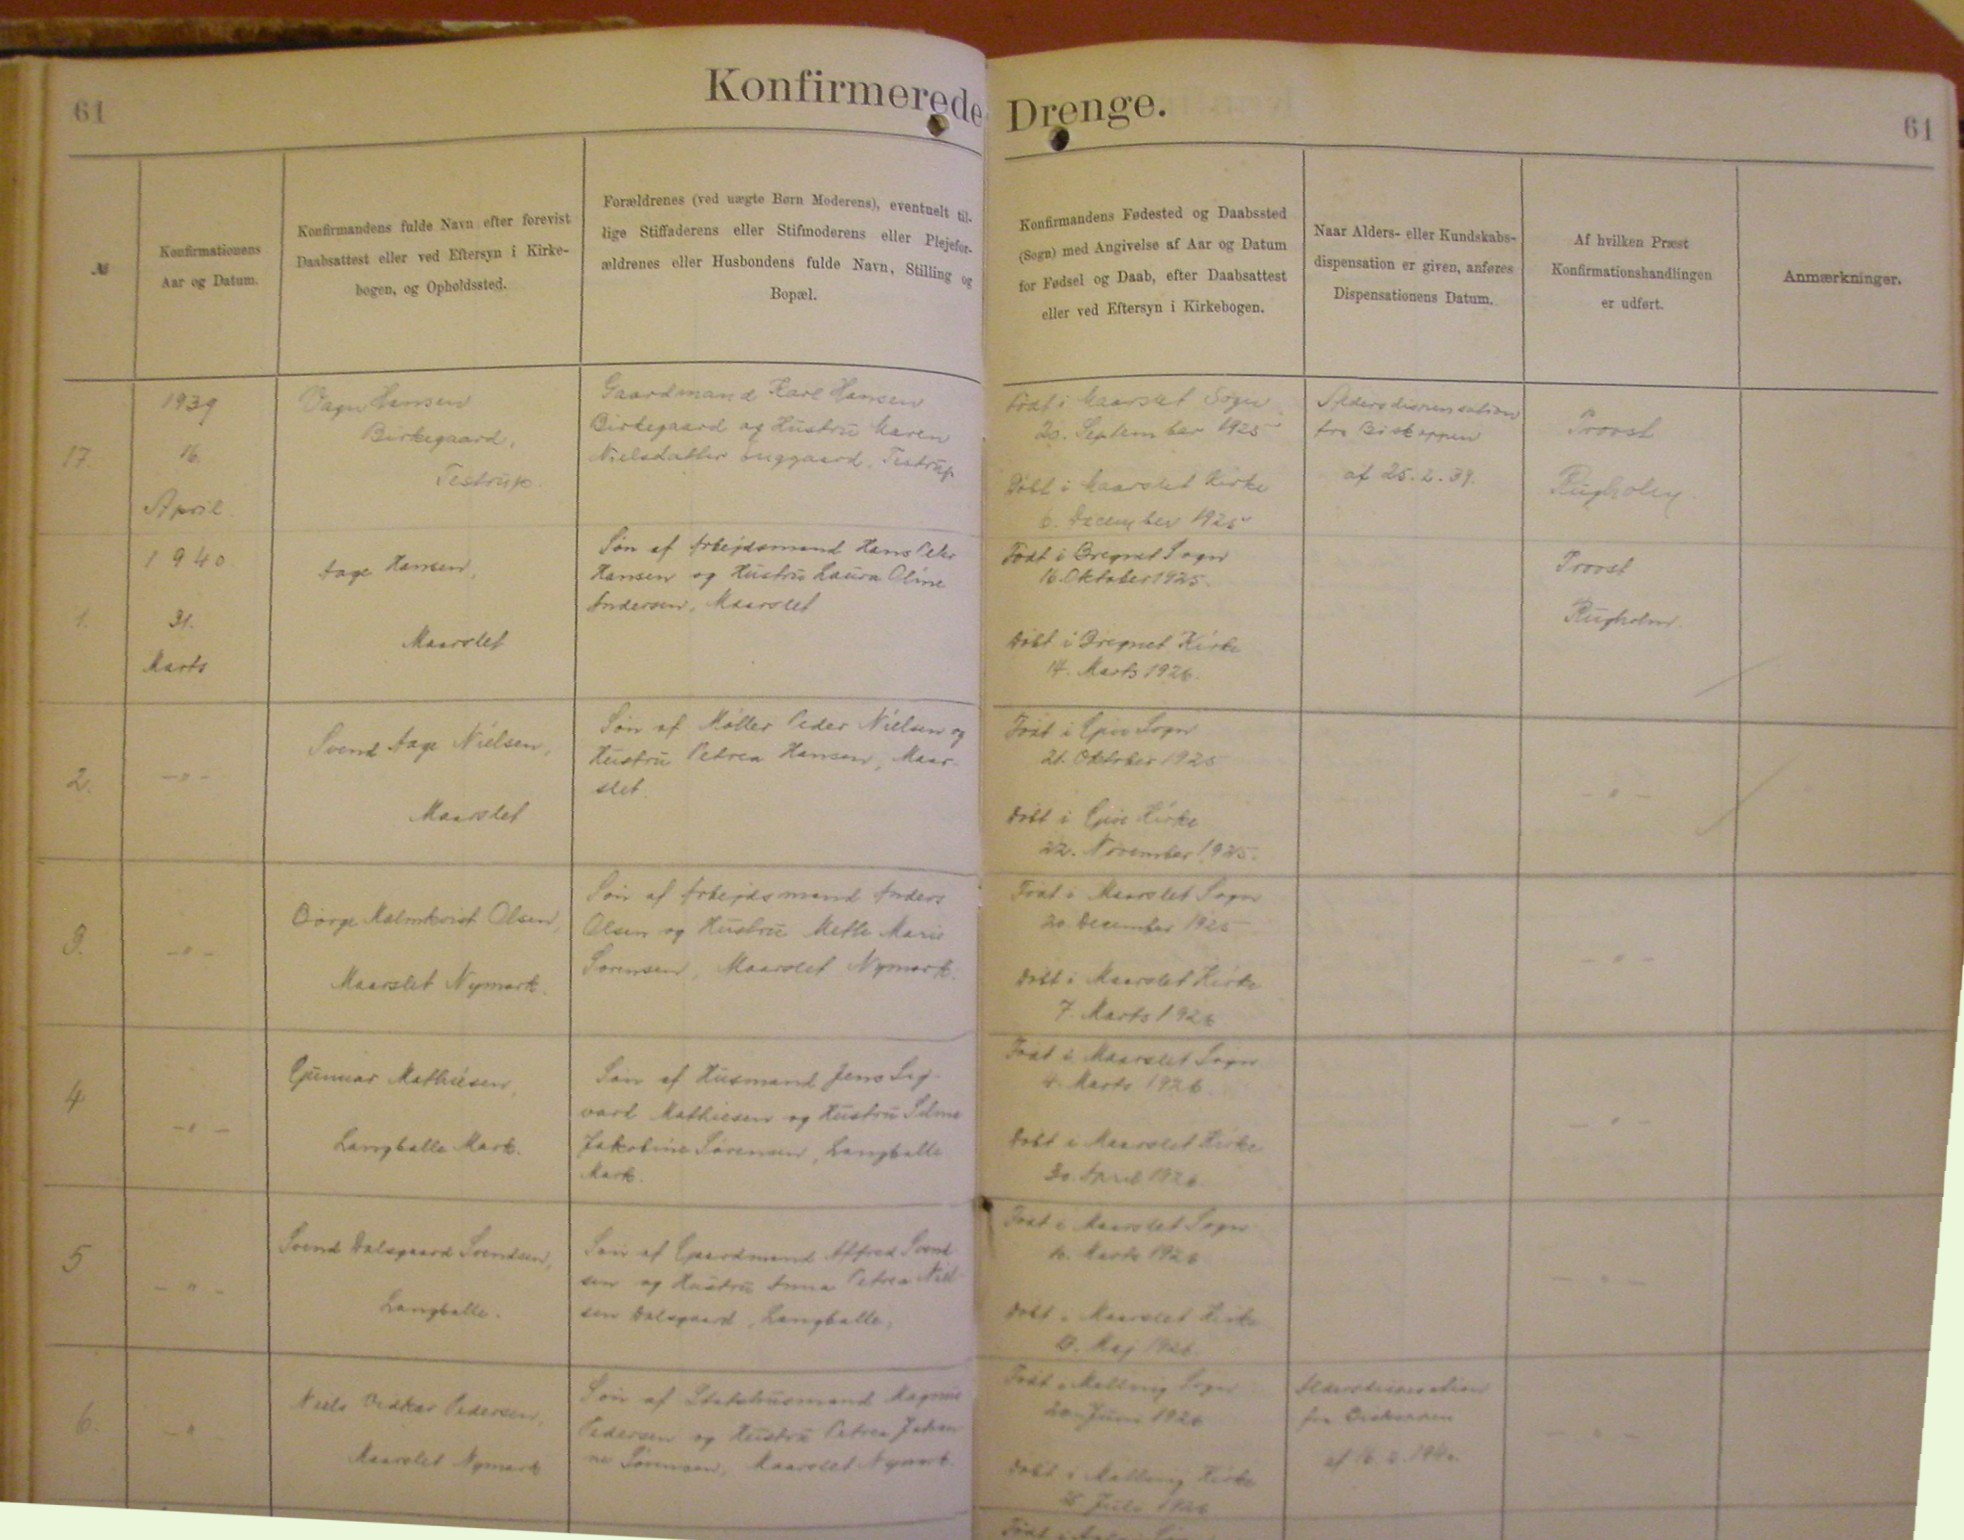 61
Konfirmerede Drenge.
61
№
Konfirmationens
Aar og Datum.
Konfirmandens fulde Navn efter forevist
Daabsattest eller ved Eftersyn i Kirke-
bogen, og Opholdssted.
Forældrenes (ved uægte Børn Moderens), eventuelt til-
lige Stiffaderens eller Stifmoderens eller Plejefor-
ældrenes eller Husbondens fulde Navn, Stilling og
Bopæl.
Konfirmandens Fødested og Daabssted
(Sogn) med Angivelse af Aar og Datum
for Fødsel og Daab, efter Daabsattest
eller ved Eftersyn i Kirkebogen.
Naar Alders- eller Kundskabs-
dispensation er given, anføres
Dispensationens Datum.
Af hvilken Præst
Konfirmationshandlingen
er udført.
Anmærkninger.
17.
1939
16.
April.
Vagn Hansen
Birkegaard,
Testrup.
Gaardmand Karl Hansen
Birkegaard og Hustru Maren
Nielsdatter Testrup
Født i Maarslet Sogn
20. September 1925
Døbt i Maarslet Kirke
6. December 1925
Aldersdispensation
fra Biskoppen
af 25.2.39.
Provst
Rugholm.
1.
1940.
31.
Marts
Aage Hansen,
Maarslet
Søn af Arbejdsmand Hans Peter
Hansen og Hustru Laura Oline
Andersen, Maarslet
Født i Bregnet Sogn
16. Oktober 1925.
Døbt i Bregnet Kirke
14. Marts 1926.
Provst
Rugholm.
2.
-"-
Svend Aage Nielsen,
Maarslet
Søn af Møller Peder Nielsen og
Hustru Petrea Hansen, Maar-
slet.
Født i Sogn
21. Oktober 1925
Døbt i Kirke
22. November 1925.
-"-
3.
-"-
Børge Malmkvist Olsen,
Maarslet Nymark.
Søn af Arbejdsmand Anders
Olsen og Hustru Mette Marie
Sørensen, Maarslet Nymark.
Født i Maarslet Sogn
20. December 1925
Døbt i Maarslet Kirke
7. Marts 1926
-"-
4
-"-
Gunnar Mathiesen,
Langballe Mark.
Søn af Husmand Jens Sig-
vard Mathiesen og Hustru
Jakobine Sørensen, Langballe
Mark.
Født i Maarslet Sogn
4. Marts 1926
Døbt i Maarslet Kirke
April 1926.
-"-
5
-"-
Svend Dalsgaard Svendsen,
Langballe.
Søn af Gaardmand Alfred Svend-
sen og Hustru Anna Petrea Niel-
sen Dalsgaard, Langballe.
Født i Maarslet Sogn
Marts 1926
Døbt i Maarslet Kirke
Maj 1926.
-"-
6.
-"-
Niels Pedersen,
Maarslet Nymark
Søn af Statshusmand Magnus
Pedersen og Hustru Petrea Johan-
ne Sørensen, Maarslet Nymark.
Født i Malling Sogn
20. Juni 1926
Døbt i Malling Kirke
Juli 1926
Aldersdispensation
fra Biskoppen
af 16. 2. 1940.
-"-